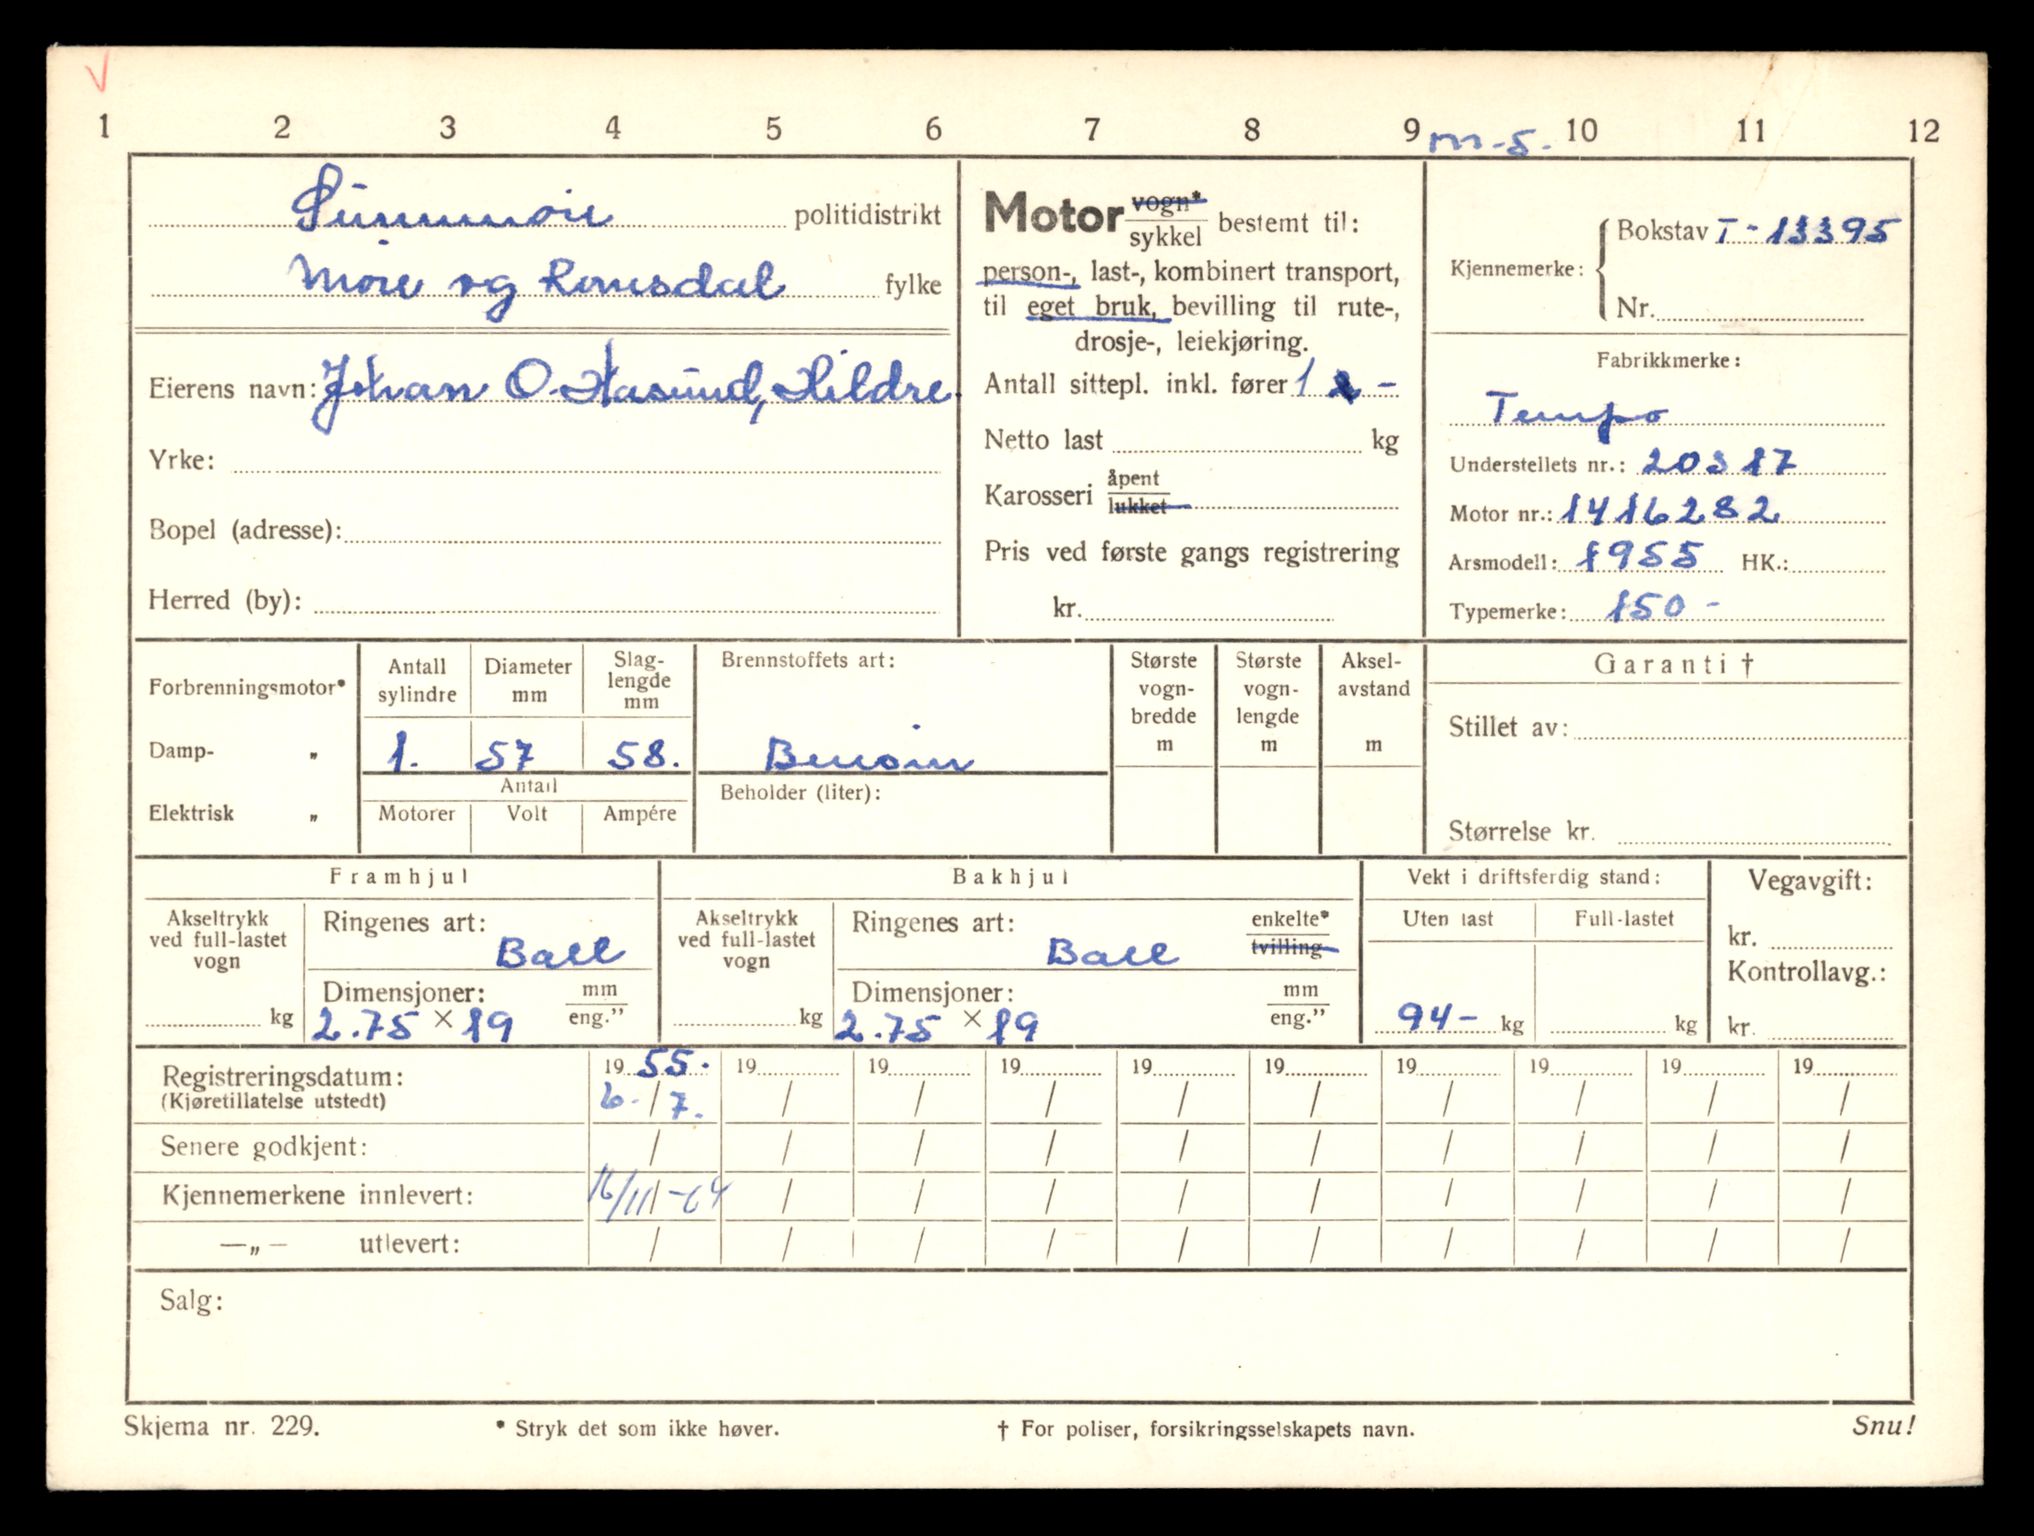 1 2 3 4 5 6 7 8 9 m-5. 10 11 12
Sunnmøre politidistrikt
Møre og Romsdal fylke
Eierens navn: Johan O. Hasund, Hildre.
Yrke:
Bopel (adresse):
Herred (by):
Motor vogn* / sykkel bestemt til:
person-, last-, kombinert transport,
til eget bruk, bevilling til rute-,
drosje-, leiekjøring.
Antall sittepl. inkl. fører 1 -
Netto last kg
Karosseri åpent / lukket
Pris ved første gangs registrering
kr.
Kjennemerke: Bokstav T-13395
Nr.
Fabrikkmerke:
Tempo
Understellets nr.: 20317
Motor nr.: 1416282
Arsmodell: 1955 HK.:
Typemerke: 150 -
Forbrenningsmotor*
Damp- „
Elektrisk „
Antall sylindre
1.
Diameter mm
57
Slag-lengde mm
58.
Antall
Motorer Volt Ampére
Brennstoffets art:
Bensin
Beholder (liter):
Største vogn-bredde m
Største vogn-lengde m
Aksel-avstand m
Garanti †
Stillet av:
Størrelse kr.
Framhjul
Akseltrykk ved full-lastet vogn
kg
Ringenes art:
Ball
Dimensjoner: mm / eng.”
2.75 × 19
Bakhjul
Akseltrykk ved full-lastet vogn
kg
Ringenes art: enkelte* / tvilling
Ball
Dimensjoner: mm / eng.”
2.75 × 19
Vekt i driftsferdig stand:
Uten last Full-lastet
94- kg kg
Vegavgift:
kr.
Kontrollavg.:
kr.
Registreringsdatum: 19 55. 19 19 19 19 19 19 19 19 19
(Kjøretillatelse utstedt) 6./7. / / / / / / / / /
Senere godkjent: / / / / / / / / / /
Kjennemerkene innlevert: 16/11-64 / / / / / / / / /
—„— utlevert: / / / / / / / / / /
Salg:
Skjema nr. 229. * Stryk det som ikke høver. † For poliser, forsikringsselskapets navn. Snu!